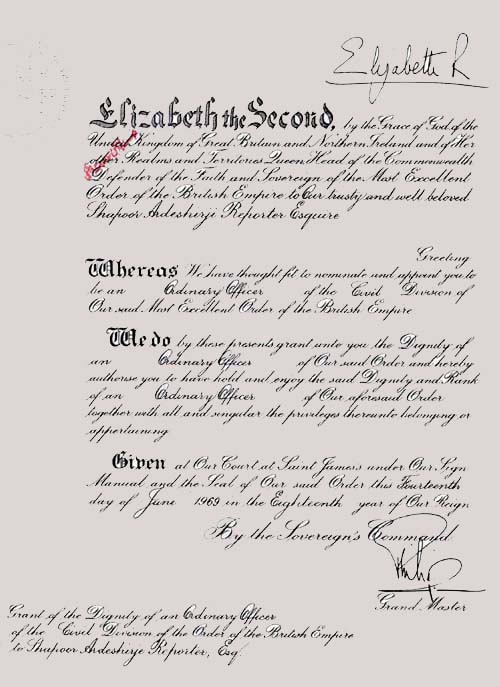 Elizabeth R
Elizabeth the Second, by the Grace of God, of the
United Kingdom of Great Britain and Northern Ireland and of Her
other Realms and Territories Queen, Head of the Commonwealth
Defender of the Faith and Sovereign of the Most Excellent
Order of the British Empire to Our trusty and well beloved
Shapoor Ardeshirji Reporter Esquire
Greeting
Whereas We have thought fit to nominate and appoint you to
be an Ordinary Officer of the Civil Division of
Our said Most Excellent Order of the British Empire
We do by these presents grant unto you the Dignity of
an Ordinary Officer of Our said Order and hereby
authorise you to have hold and enjoy the said Dignity and Rank
of an Ordinary Officer of Our aforesaid Order
together with all and singular the privileges thereunto belonging or
appertaining
Given at Our Court at Saint James's under Our Sign
Manual and the Seal of Our said Order this Fourteenth
day of June 1969 in the Eighteenth year of Our Reign
By the Sovereign's Command
Philip
Grand Master
Grant of the Dignity of an Ordinary Officer
of the Civil Division of the Order of the British Empire
to Shapoor Ardeshirje Reporter, Esq.